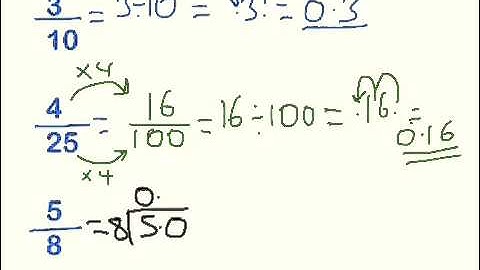 3/10 = 3÷10 = .3. = 0.3
×4
4/25 = 16/100 = 16÷100 = .16. = 0.16
×4
0.
5/8 = 8√5.0